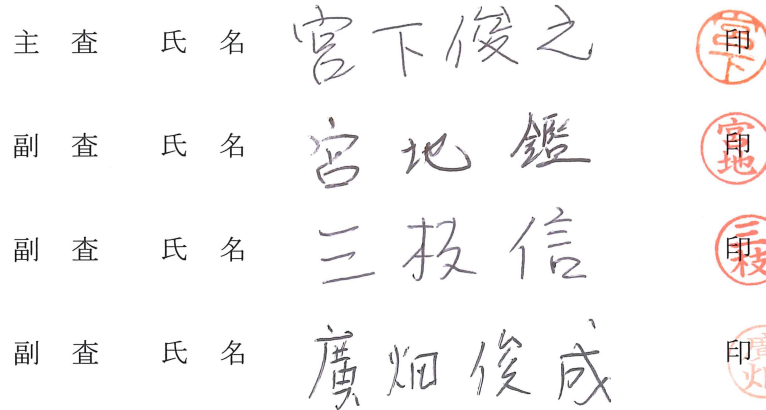 主査 氏名 宮下俊之 印 宮下
副査 氏名 宮地鑑 印 宮地
副査 氏名 三枝信 印 三枝
副査 氏名 廣畑俊成 印 廣畑